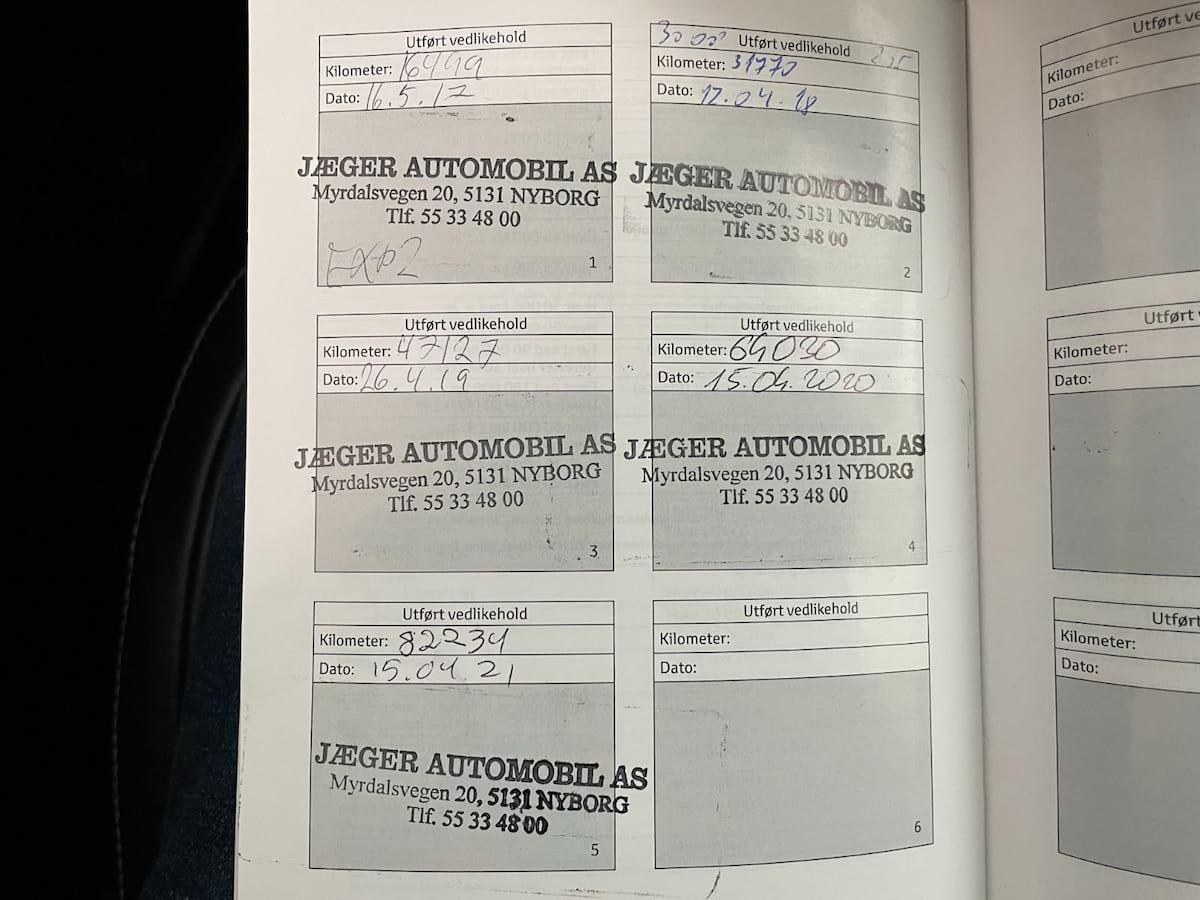 Utført vedlikehold
Kilometer: 16449
Dato: 16.5.17
JÆGER AUTOMOBIL AS
Myrdalsvegen 20, 5131 NYBORG
Tlf. 55 33 48 00
1
Utført vedlikehold
Kilometer: 31770
Dato: 12.04.18
JÆGER AUTOMOBIL AS
Myrdalsvegen 20, 5131 NYBORG
Tlf. 55 33 48 00
2
Utført vedlikehold
Kilometer: 47127
Dato: 26.4.19
JÆGER AUTOMOBIL AS
Myrdalsvegen 20, 5131 NYBORG
Tlf. 55 33 48 00
3
Utført vedlikehold
Kilometer: 64030
Dato: 15.04.2020
JÆGER AUTOMOBIL AS
Myrdalsvegen 20, 5131 NYBORG
Tlf. 55 33 48 00
4
Utført vedlikehold
Kilometer: 82234
Dato: 15.04.21
JÆGER AUTOMOBIL AS
Myrdalsvegen 20, 5131 NYBORG
Tlf. 55 33 48 00
5
Utført vedlikehold
Kilometer:
Dato:
6
Utført
Kilometer:
Dato:
Utført
Kilometer:
Dato:
Utført
Kilometer:
Dato: